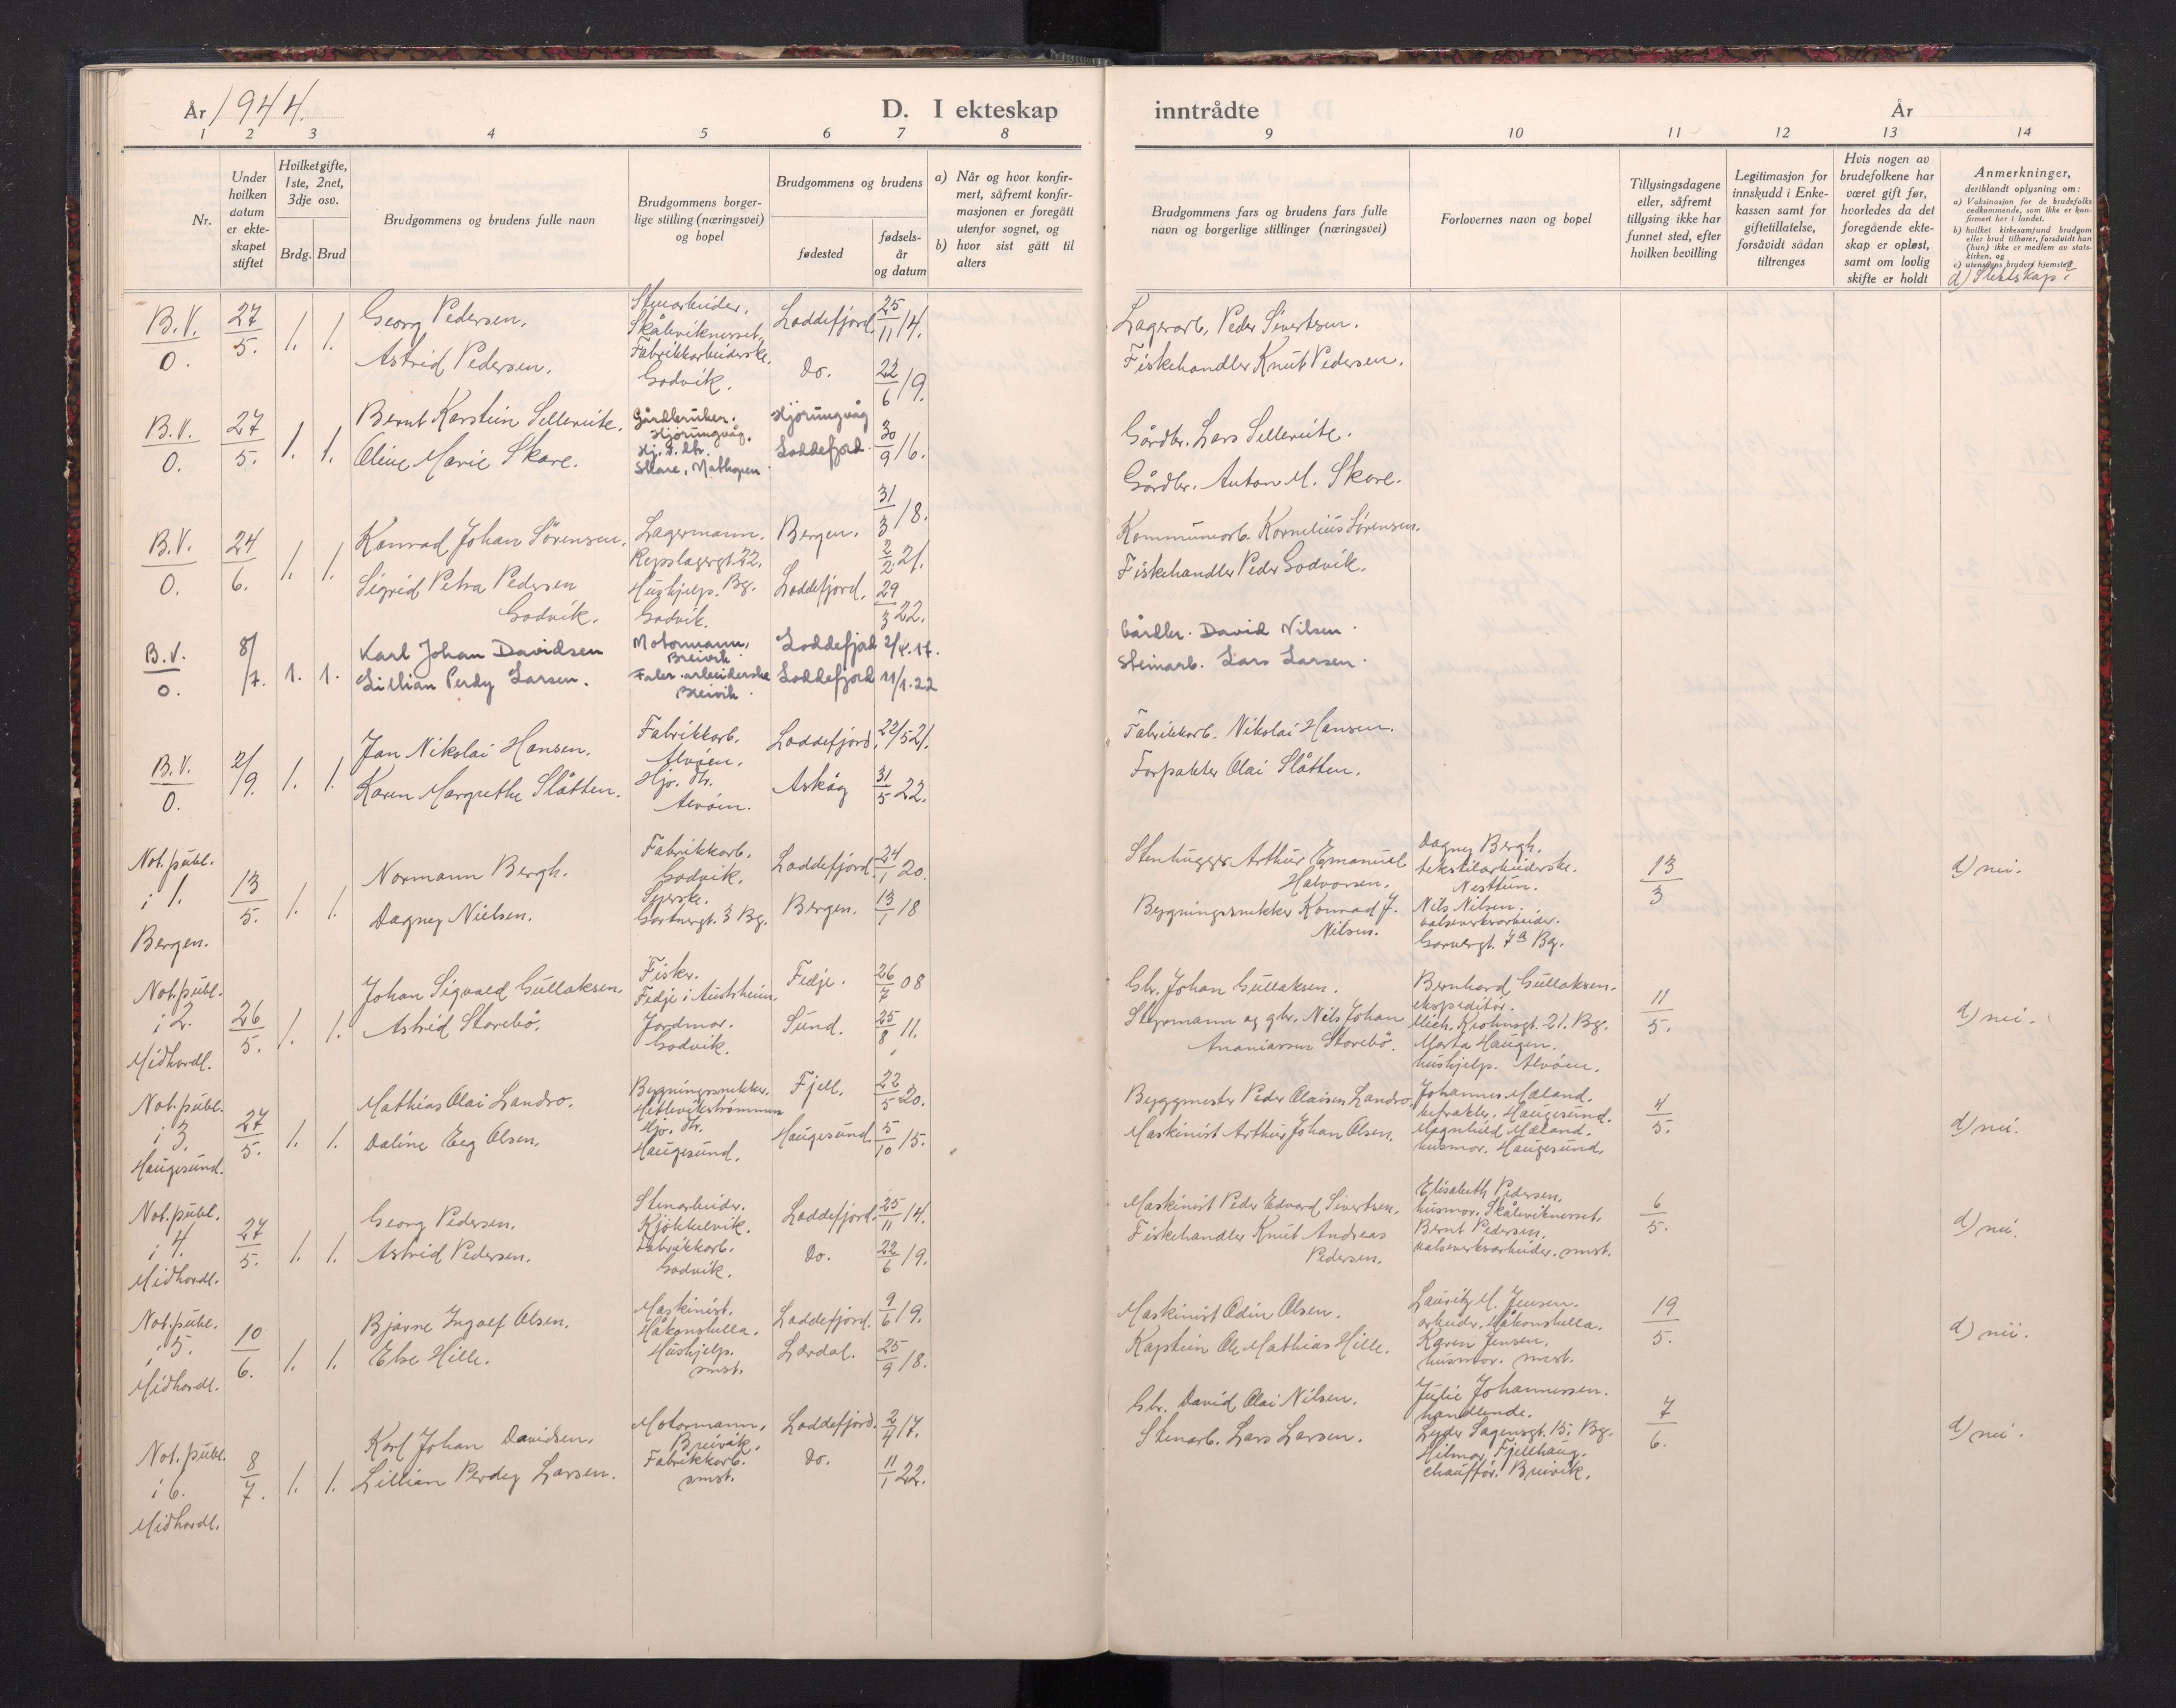 År 1944.
D. I ekteskap
inntrådte
År
1 2 3 4 5 6 7 8 9 10 11 12 13 14
Nr.
Under
hvilken
datum
er ekte-
skapet
stiftet
Hvilket gifte,
1ste, 2net,
3dje osv.
Brdg. Brud
Brudgommens og brudens fulle navn
Brudgommens borger-
lige stilling (næringsvei)
og bopel
Brudgommens og brudens
fødested
fødsels-
år
og datum
a) Når og hvor konfir-
mert, såfremt konfir-
masjonen er foregått
utenfor sognet, og
b) hvor sist gått til
alters
Brudgommens fars og brudens fars fulle
navn og borgerlige stillinger (næringsvei)
Forlovernes navn og bopel
Tillysingsdagene
eller, såfremt
tillysing ikke har
funnet sted, efter
hvilken bevilling
Legitimasjon for
innskudd i Enke-
kassen samt for
giftetillatelse,
forsåvidt sådan
tiltrenges
Hvis nogen av
brudefolkene har
været gift før,
hvorledes da det
foregående ekte-
skap er opløst,
samt om lovlig
skifte er holdt
Anmerkninger,
deriblandt oplysning om:
a) Vaksinasjon for de brudefolks
vedkommende, som ikke er kon-
firmert her i landet.
b) hvilket kirkesamfund brudgom
eller brud tilhører, forsåvidt han
(hun) ikke er medlem av stats-
kirken, og
c) utensogns bruders hjemsted
d) Slektskap?
B.V. 27 1. 1. Georg Pedersen. Stenarbeider. Loddefjord. 25/11 14. Lagerarb. Peder Sivertsen.
0. 5. Skålviknesset.
Astrid Pedersen. Fabrikkarbeiderske. Do. 22/6 19. Fiskehandler Knut Pedersen.
Godvik.
B.V. 27 1. 1. Bernt Karstein Sellereite. Gårdbruker. Hjørungvåg 30/9 16. Gårdbr. Lars Sellereite.
0. 5. Hjørungvåg.
Oline Marie Skare. Hj. v. dtr. Loddefjord. 31/3 18. Gårdbr. Anton M. Skare.
Skare, Mathopen.
B.V. 24 1. 1. Konrad Johan Sörensen. Lagermann. Bergen. 2/2 21. Kommunearb. Kornelius Sørensen.
0. 6. Repslagergt. 22.
Sigrid Petra Pedersen Hushjelp. Bg. Loddefjord. 29/3 22. Fiskehandler Peder Godvik.
Godvik. Godvik.
B.V. 8/7. 1. 1. Karl Johan Davidsen Motormann. Loddefjord 2/4.17. Gårdbr. David Nilsen.
0. Breivik
Lillian Perdy Larsen. Fabr.arbeiderske Loddefjord 11/1.22 Steinarb. Lars Larsen.
Breivik.
B.V. 2/9. 1. 1. Jan Nikolai Hansen. Fabrikkarb. Loddefjord. 22/5 21. Fabrikkarb. Nikolai Hansen.
0. Alvøen.
Karen Margrethe Slåtten. Hjv. dtr. Askøy 31/5 22. Forpakter Olai Slåtten.
Alvøen.
Not. publ. i 1. Bergen. 13/5. 1. 1. Normann Bergh. Fabrikkarb. Godvik. Loddefjord 24/1 20. Stenhugger Arthur Emanuel Halvorsen. Dagny Bergh. tekstilarbeiderske. Nesttun. 13/3 d) nei.
Dagny Nielsen. Syerske. Gartnergt. 3 Bg. Bergen. 13/1 18 Bygningssnekker Konrad J. Nilsen. Nils Nilsen. valseverksarbeider. Garvergt. 7a Bg.
Not. publ. i 2. Midhordl. 26/5. 1. 1. Johan Sigvald Gullaksen. Fisker. Fedje i Austrheim. Fedje. 26/7 08 Gbr. Johan Gullaksen. Bernhard Gullaksen. ekspeditör. Mich. Krohnsgt. 21. Bg. 11/5. d) nei.
Astrid Storebö. Jordmor. Godvik. Sund. 25/8 11. Styrmann og gbr. Nils Johan Ananiassen Storebö. Marta Haugen. hushjelp. Alvøen.
Not. publ. i 3. Haugesund. 27/5. 1. 1. Mathias Olai Landro. Bygningssnekker. Hetlevikstrømmen Fjell. 22/5 20. Byggmester Peder Olaisen Landro. Johannes Mæland. befrakter. Haugesund. 4/5. d) nei.
Daline Eeg Olsen. Hjv. dtr. Haugesund. Haugesund. 5/10 15. Maskinist Arthur Johan Olsen. Magnhild Mæland. husmor. Haugesund.
Not. publ. i 4. Midhordl. 27/5. 1. 1. Georg Pedersen. Stenarbeider. Kjøkkelvik. Loddefjord. 25/11 14. Maskinist Peder Edvard Sivertsen. Elisabeth Pedersen. husmor. Skålviknesset. 6/5. d) nei.
Astrid Pedersen. Fabrikkarb. Godvik. Do. 22/6 19. Fiskehandler Knut Andreas Pedersen. Bernt Pedersen. valseverksarbeider. smst.
Not. publ. i 5. Midhordl. 10/6. 1. 1. Bjarne Ingolf Olsen. Maskinist. Håkonshella. Loddefjord. 9/6 19. Maskinist Odin Olsen. Lauritz M. Jensen. arbeider. Håkonshella. 19/5. d) nei.
Else Hille. Hushjelp. smst. Lærdal. 25/9 18. Kaptein Ole Mathias Hille. Karen Jensen. husmor. smst.
Not. publ. i 6. Midhordl. 8/7. 1. 1. Karl Johan Davidsen. Motormann. Breivik. Loddefjord. 2/4 17. Gbr. David Olai Nilsen. Julie Johannessen. handlende. Lyder Sagensgt. 15. Bg. 7/6. d) nei.
Lillian Perdy Larsen. Fabrikkarb. smst. Do. 11/1 22. Stenarb. Lars Larsen. Hilmar Fjellhaug. chauffør. Breivik.